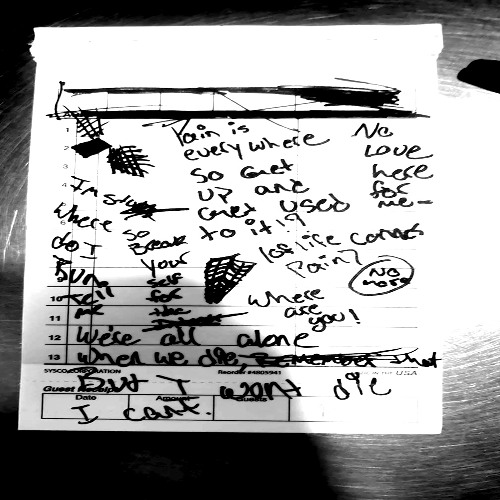 Pain is
everywhere
so Get
up and
Get used
to it!?
No
Love
here
for
me-
I'm
where
do I
Run
tell
me
so
Break
your
self
for
the
1 of life comes
Pain?
No
more
where
are
you!
1
2
3
4
10
11
12 We're all alone
13 when we die, Remember that
SYSCO CORPORATION Reorder #4805941 USA
But I wont die
Guest Receipt
Date Amount Guests
I cant.